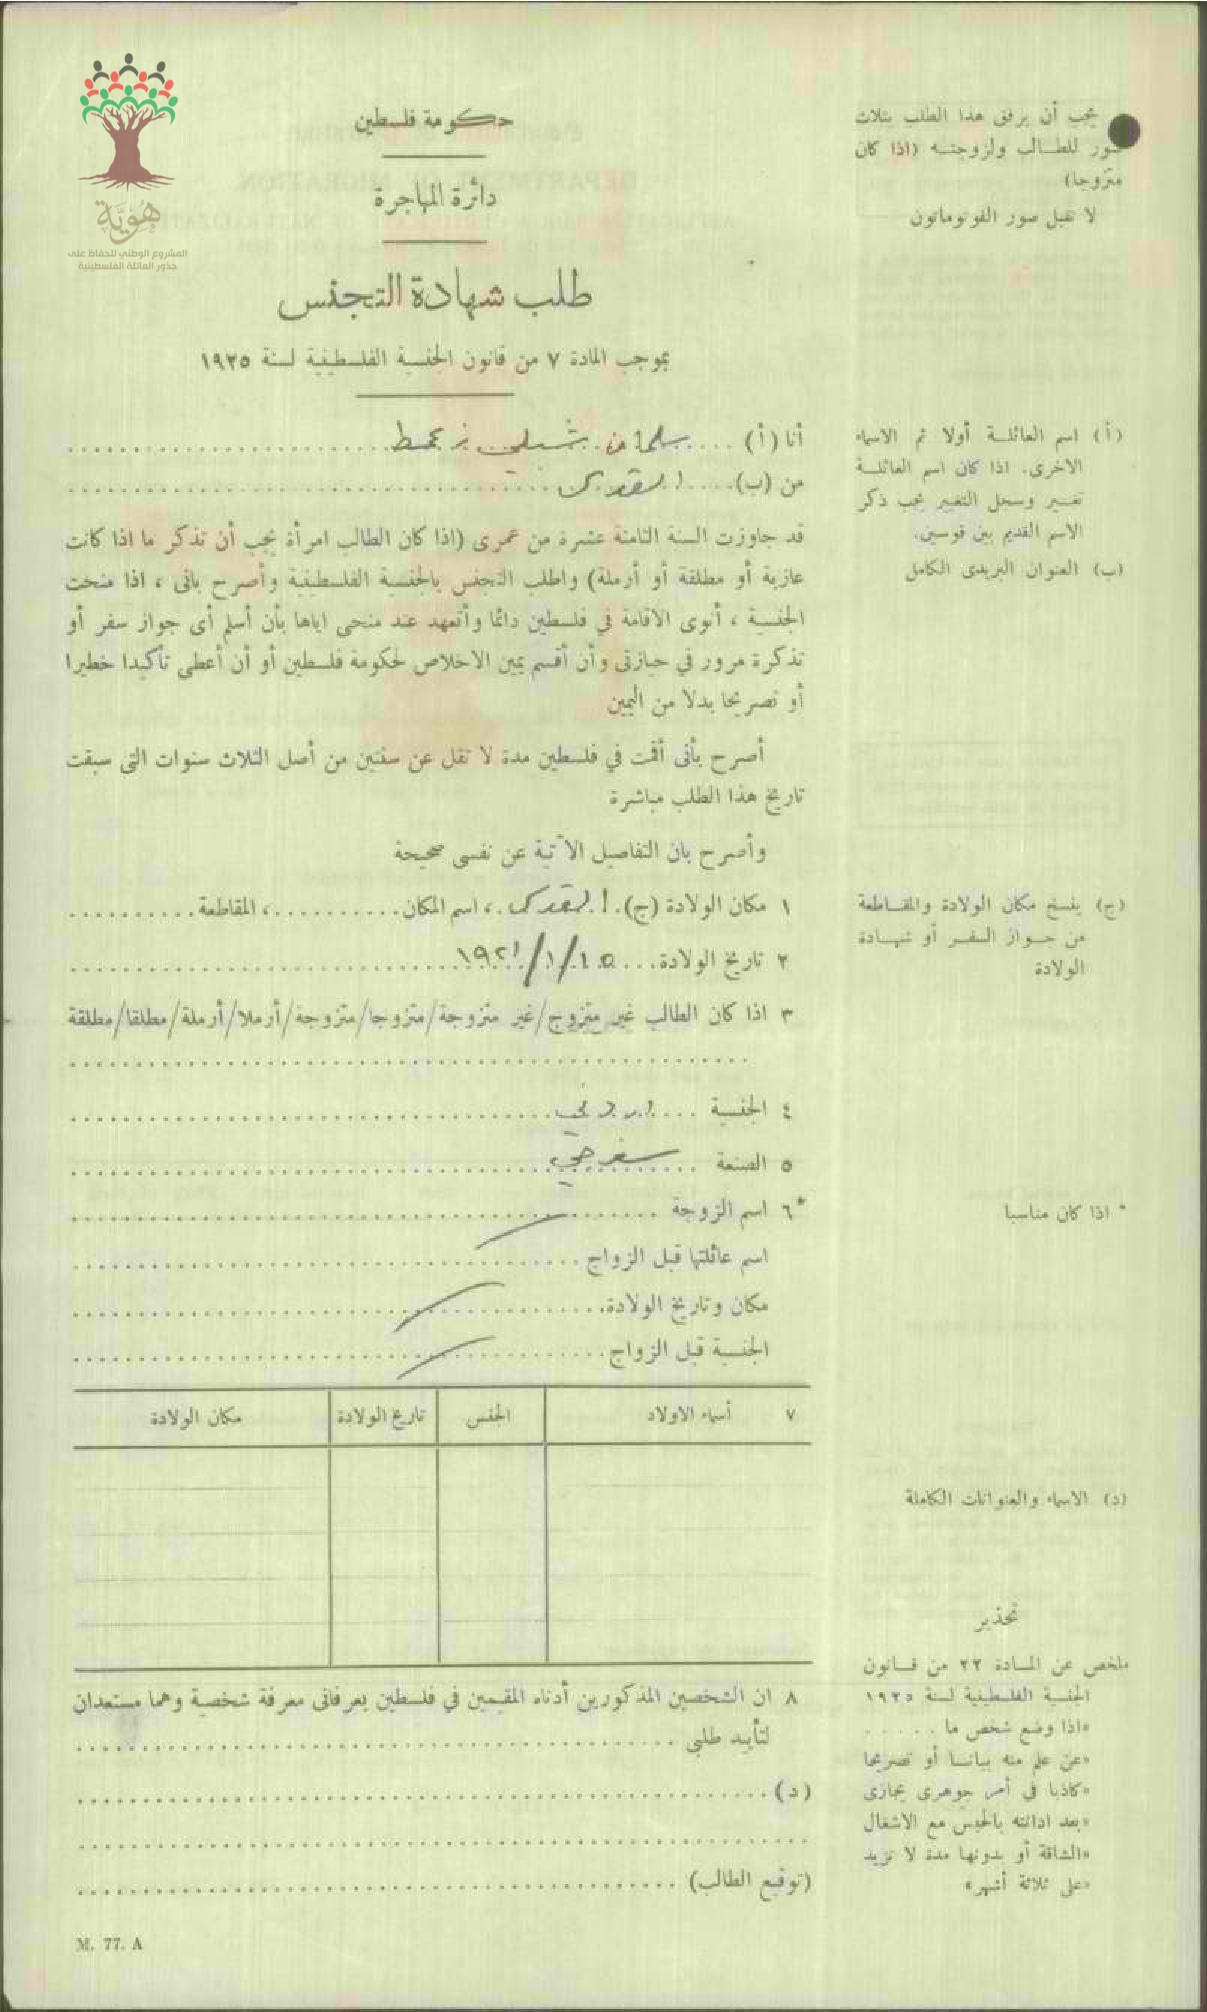 هوية
المشروع الوطني للحفاظ على
جذور العائلة الفلسطينية
حكومة فلسطين
دائرة المهاجرة
طلب شهادة التجنس
بموجب المادة ٧ من قانون الجنسية الفلسطينية لسنة ١٩٢٥
يجب أن يرفق هذا الطلب بثلاث
صور للطالب ولزوجته (اذا كان
متزوجا)
لا تقبل صور الفوتوماتون
أنا (أ) .... سلمان شبلي
من (ب) .... القدس
قد جاوزت السنة الثامنة عشرة من عمرى (اذا كان الطالب امرأة يجب أن تذكر ما اذا كانت
عازبة أو مطلقة أو أرملة) واطلب التجنس بالجنسية الفلسطينية وأصرح بانى ، اذا منحت
الجنسية ، أنوى الاقامة في فلسطين دائما وأتعهد عند منحى اياها بأن أسلم أى جواز سفر أو
تذكرة مرور في حيازتى وأن أقسم يمين الاخلاص لحكومة فلسطين أو أن أعطى تأكيدا خطيرا
أو تصريحا بدلا من اليمين
أصرح بأنى أقمت في فلسطين مدة لا تقل عن سنتين من أصل الثلاث سنوات التى سبقت
تاريخ هذا الطلب مباشرة
وأصرح بان التفاصيل الآتية عن نفسى صحيحة
١ مكان الولادة (ج) . القدس . ، اسم المكان .......... ، المقاطعة ..........
٢ تاريخ الولادة ... ١٥/١/١٩٢١
٣ اذا كان الطالب غير متزوج/غير متزوجة/متزوجا/متزوجة/أرملا/أرملة/مطلقا/مطلقة
٤ الجنسية .... اردني
٥ الصنعة .... سفرجي
*٦ اسم الزوجة
اسم عائلتها قبل الزواج
مكان وتاريخ الولادة
الجنسية قبل الزواج
٧ أسماء الاولاد الجنس تاريخ الولادة مكان الولادة
٨ ان الشخصين المذكورين أدناه المقيمين في فلسطين يعرفانى معرفة شخصية وهما مستعدان
لتأييد طلبى
(د)
(توقيع الطالب)
M. 77. A
(أ) اسم العائلة أولا ثم الاسماء
الاخرى. اذا كان اسم العائلة
تغير وسجل التغيير يجب ذكر
الاسم القديم بين قوسين.
(ب) العنوان البريدى الكامل
(ج) ينسخ مكان الولادة والمقاطعة
من جواز السفر أو شهادة
الولادة
* اذا كان مناسبا
(د) الاسماء والعنوانات الكاملة
تحذير
ملخص عن المادة ٢٢ من قانون
الجنسية الفلسطينية لسنة ١٩٢٥
«اذا وضع شخص ما .....
«عن علم منه بيانا أو تصريحا
«كاذبا في أمر جوهرى يجازى
«بعد ادانته بالحبس مع الاشغال
«الشاقة أو بدونها مدة لا تزيد
«على ثلاثة أشهر»